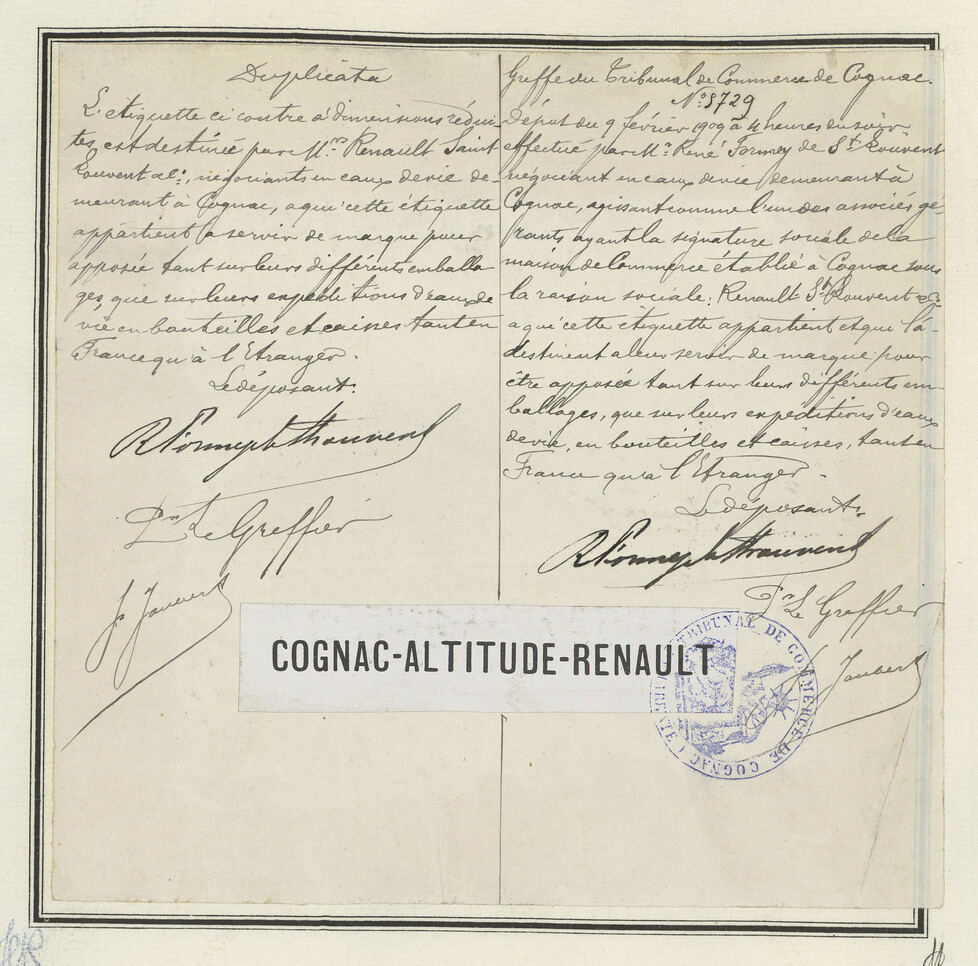 Duplicata
L'étiquette ci contre à dimensions rédui-
tes, est destinée par M.rs Renault Saint
Louvent & Cie, négociants en eaux de vie de-
meurant à Cognac, a qui cette étiquette
appartient a servir de marque pour
apposée tant sur leurs différents emballa
ges, que sur leurs expeditions d'eaux de
vie en bouteilles et caisses tant en
France qu'à l'Etranger.
Le déposant.
Pr Le Greffier
Greffe du Tribunal de Commerce de Cognac.
No 8729
Dépôt du 9 février 1909 à 4 heures du soir
effectué par Mr René Formey de St Louvent
négociant en eaux de vie demeurant à
Cognac, agissant comme l'un des associés gé-
rants ayant la signature sociale de la
maison de Commerce établie à Cognac sous
la raison sociale: Renault St Louvent & Cie
a qui cette etiquette appartient et qui la
destinent a leur servir de marque pour
être apposée tant sur leurs différents em-
ballages, que sur leurs expéditions d'eaux
de vie, en bouteilles et caisses, tant en
France qu'a l'Etranger.
Le déposant.
Pr Le Greffier
COGNAC-ALTITUDE-RENAULT
TRIBUNAL DE COMMERCE DE COGNAC